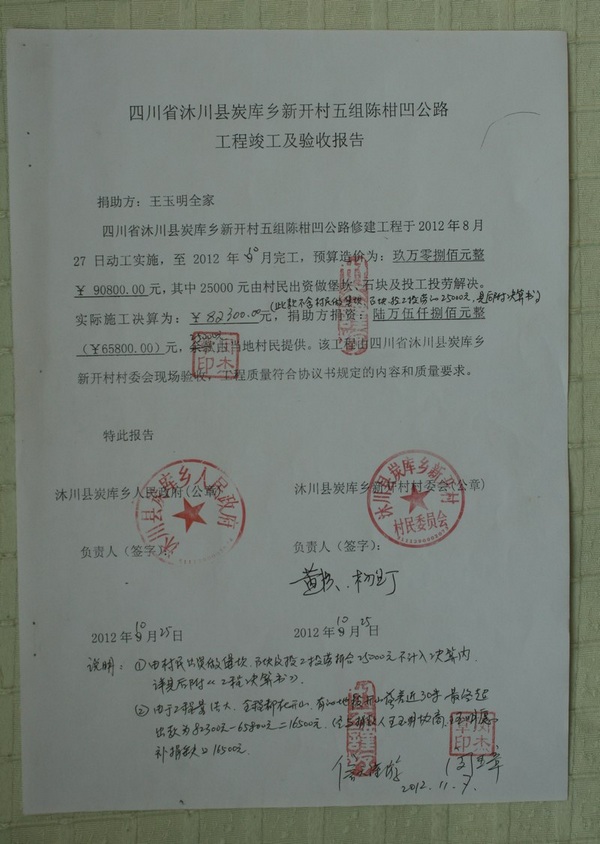 四川省沐川县炭库乡新开村五组陈柑凹公路
工程竣工及验收报告
捐助方：王玉明全家
四川省沐川县炭库乡新开村五组陈柑凹公路修建工程于2012年8月
27日动工实施，至2012年10月完工，预算造价为：玖万零捌佰元整
￥90800.00元，其中25000元由村民出资做堡坎、石块及投工投劳解决。
(此款不含村民做堡坎、石块、投工投劳的25000元，见后附《决算书》)
实际施工决算为：￥82300.00元，捐助方捐资：陆万伍仟捌佰元整
（￥65800.00）元，余款由当地村民提供。该工程由四川省沐川县炭库乡
新开村村委会现场验收，工程质量符合协议书规定的内容和质量要求。
特此报告
沐川县炭库乡人民政府(公章)
沐川县炭库乡新开村村委会(公章)
沐川县炭库乡人民政府
沐川县炭库乡新开村
村民委员会
负责人（签字）：
负责人（签字）：
2012年10月25日
2012年10月25日
说明：①由村民出资做堡坎、石块及投工投劳折合25000元不计入决算内，
详见后附《工程决算书》。
②由于工程量浩大，
出款为82300元－65800元＝16500元。
补捐款16500元。
2012.11.7.